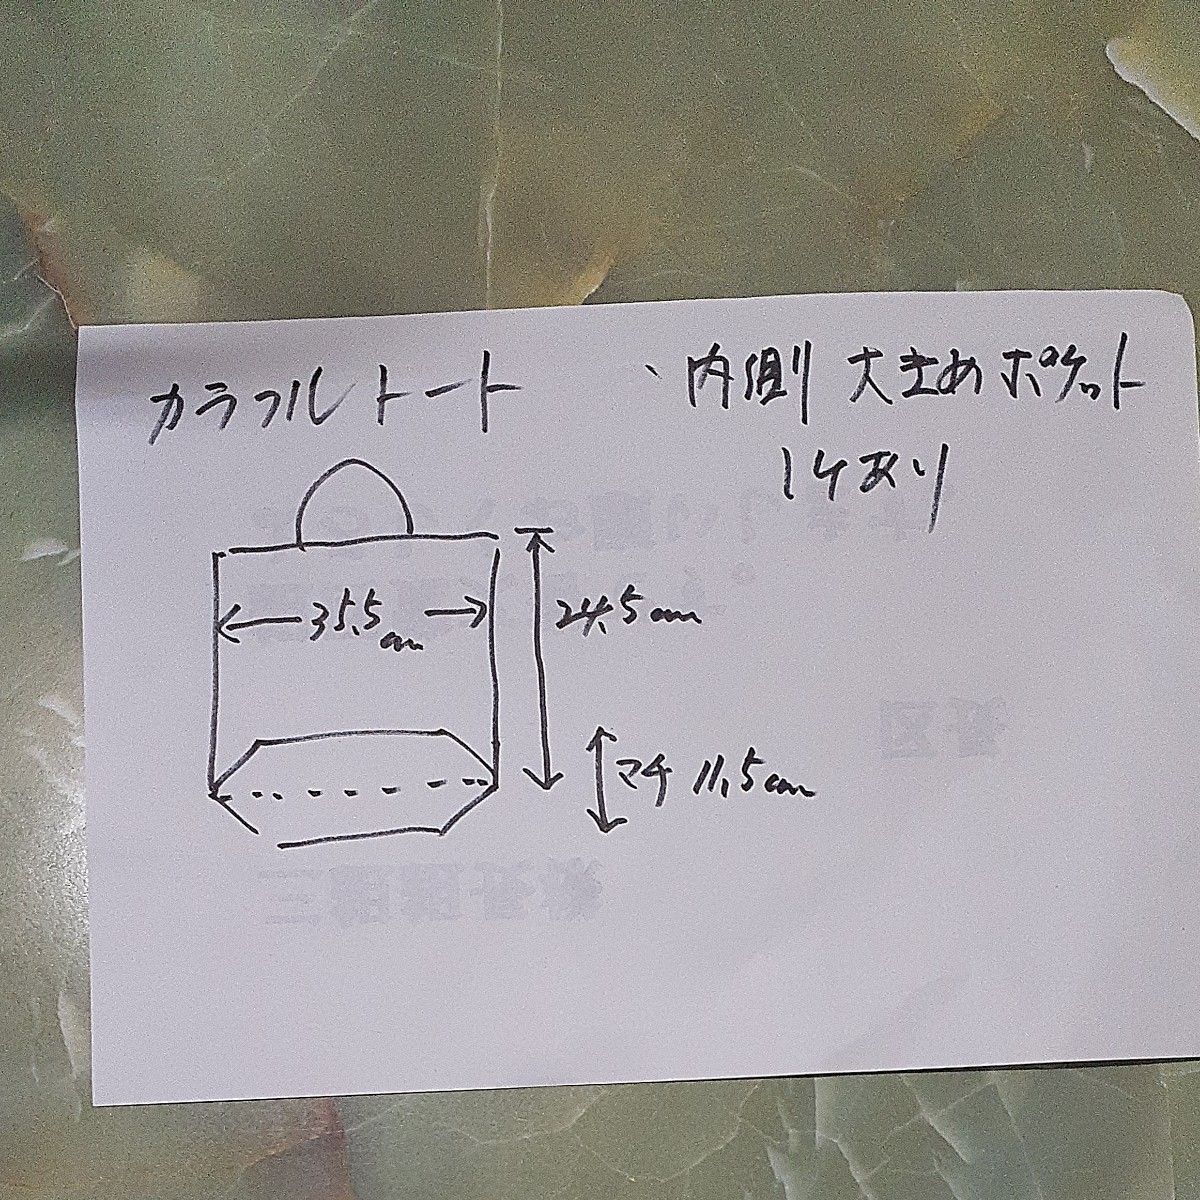 カラフルトート
、内側 大きめポケット
1ケあり
35.5cm
24.5cm
マチ 11.5cm